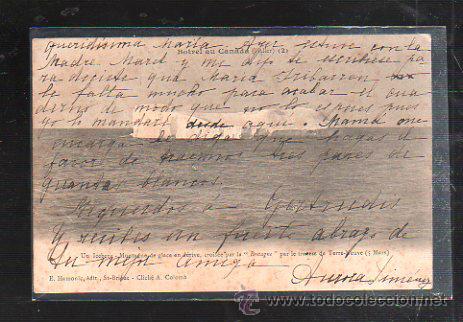 Botrel au Canada (Aller) (2)
Queridísima María Ayer estuve con la
Madre Marel y me dijo te escribiese pa
ra decirte que María Iribarren
le falta mucho para acabar el
de modo que no lo esperes pues
yo lo mandaré desde aquí. Mamá me
encarga te diga que hagas de
favor de tres pares de
guantes blancos.
Recuerdos a Gertrudis
y recibes un fuerte abrazo de
tu mejor amiga
Aurora Jiménez
Un Iceberg - Montagne de glace en dérive, croisée par le " Bretagne " par le travers de Terre-Neuve (5 Mars)
E. Hamonic, édit., St-Brieuc - Cliché A. Colomb
© todocoleccion
todocoleccion.net